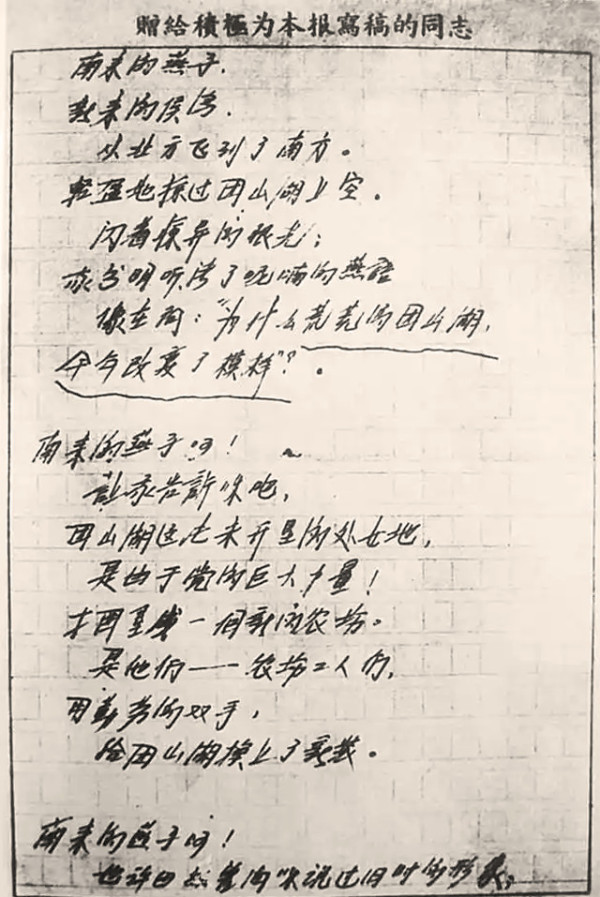 贈給積極为本报寫稿的同志
南来的燕子，
新来的候鸟，
从北方飞到了南方。
轻盈地掠过团山湖上空。
闪着惊异的眼光；
我分明听清了呢喃的燕語
像在问：“为什么荒芜的团山湖，
今年改变了模样”？。
南来的燕子呵！
让我告訴你吧，
团山湖这片未开垦的处女地，
是由于党的巨大力量！
才围垦成一個新的农场。
是他们——农场工人们，
用勤劳的双手，
给团山湖换上了新装。
南来的燕子呵！
也许 说过旧时的形象；